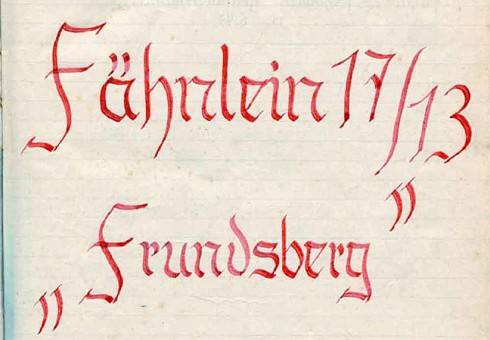 Fähnlein 17/13
„Frundsberg”